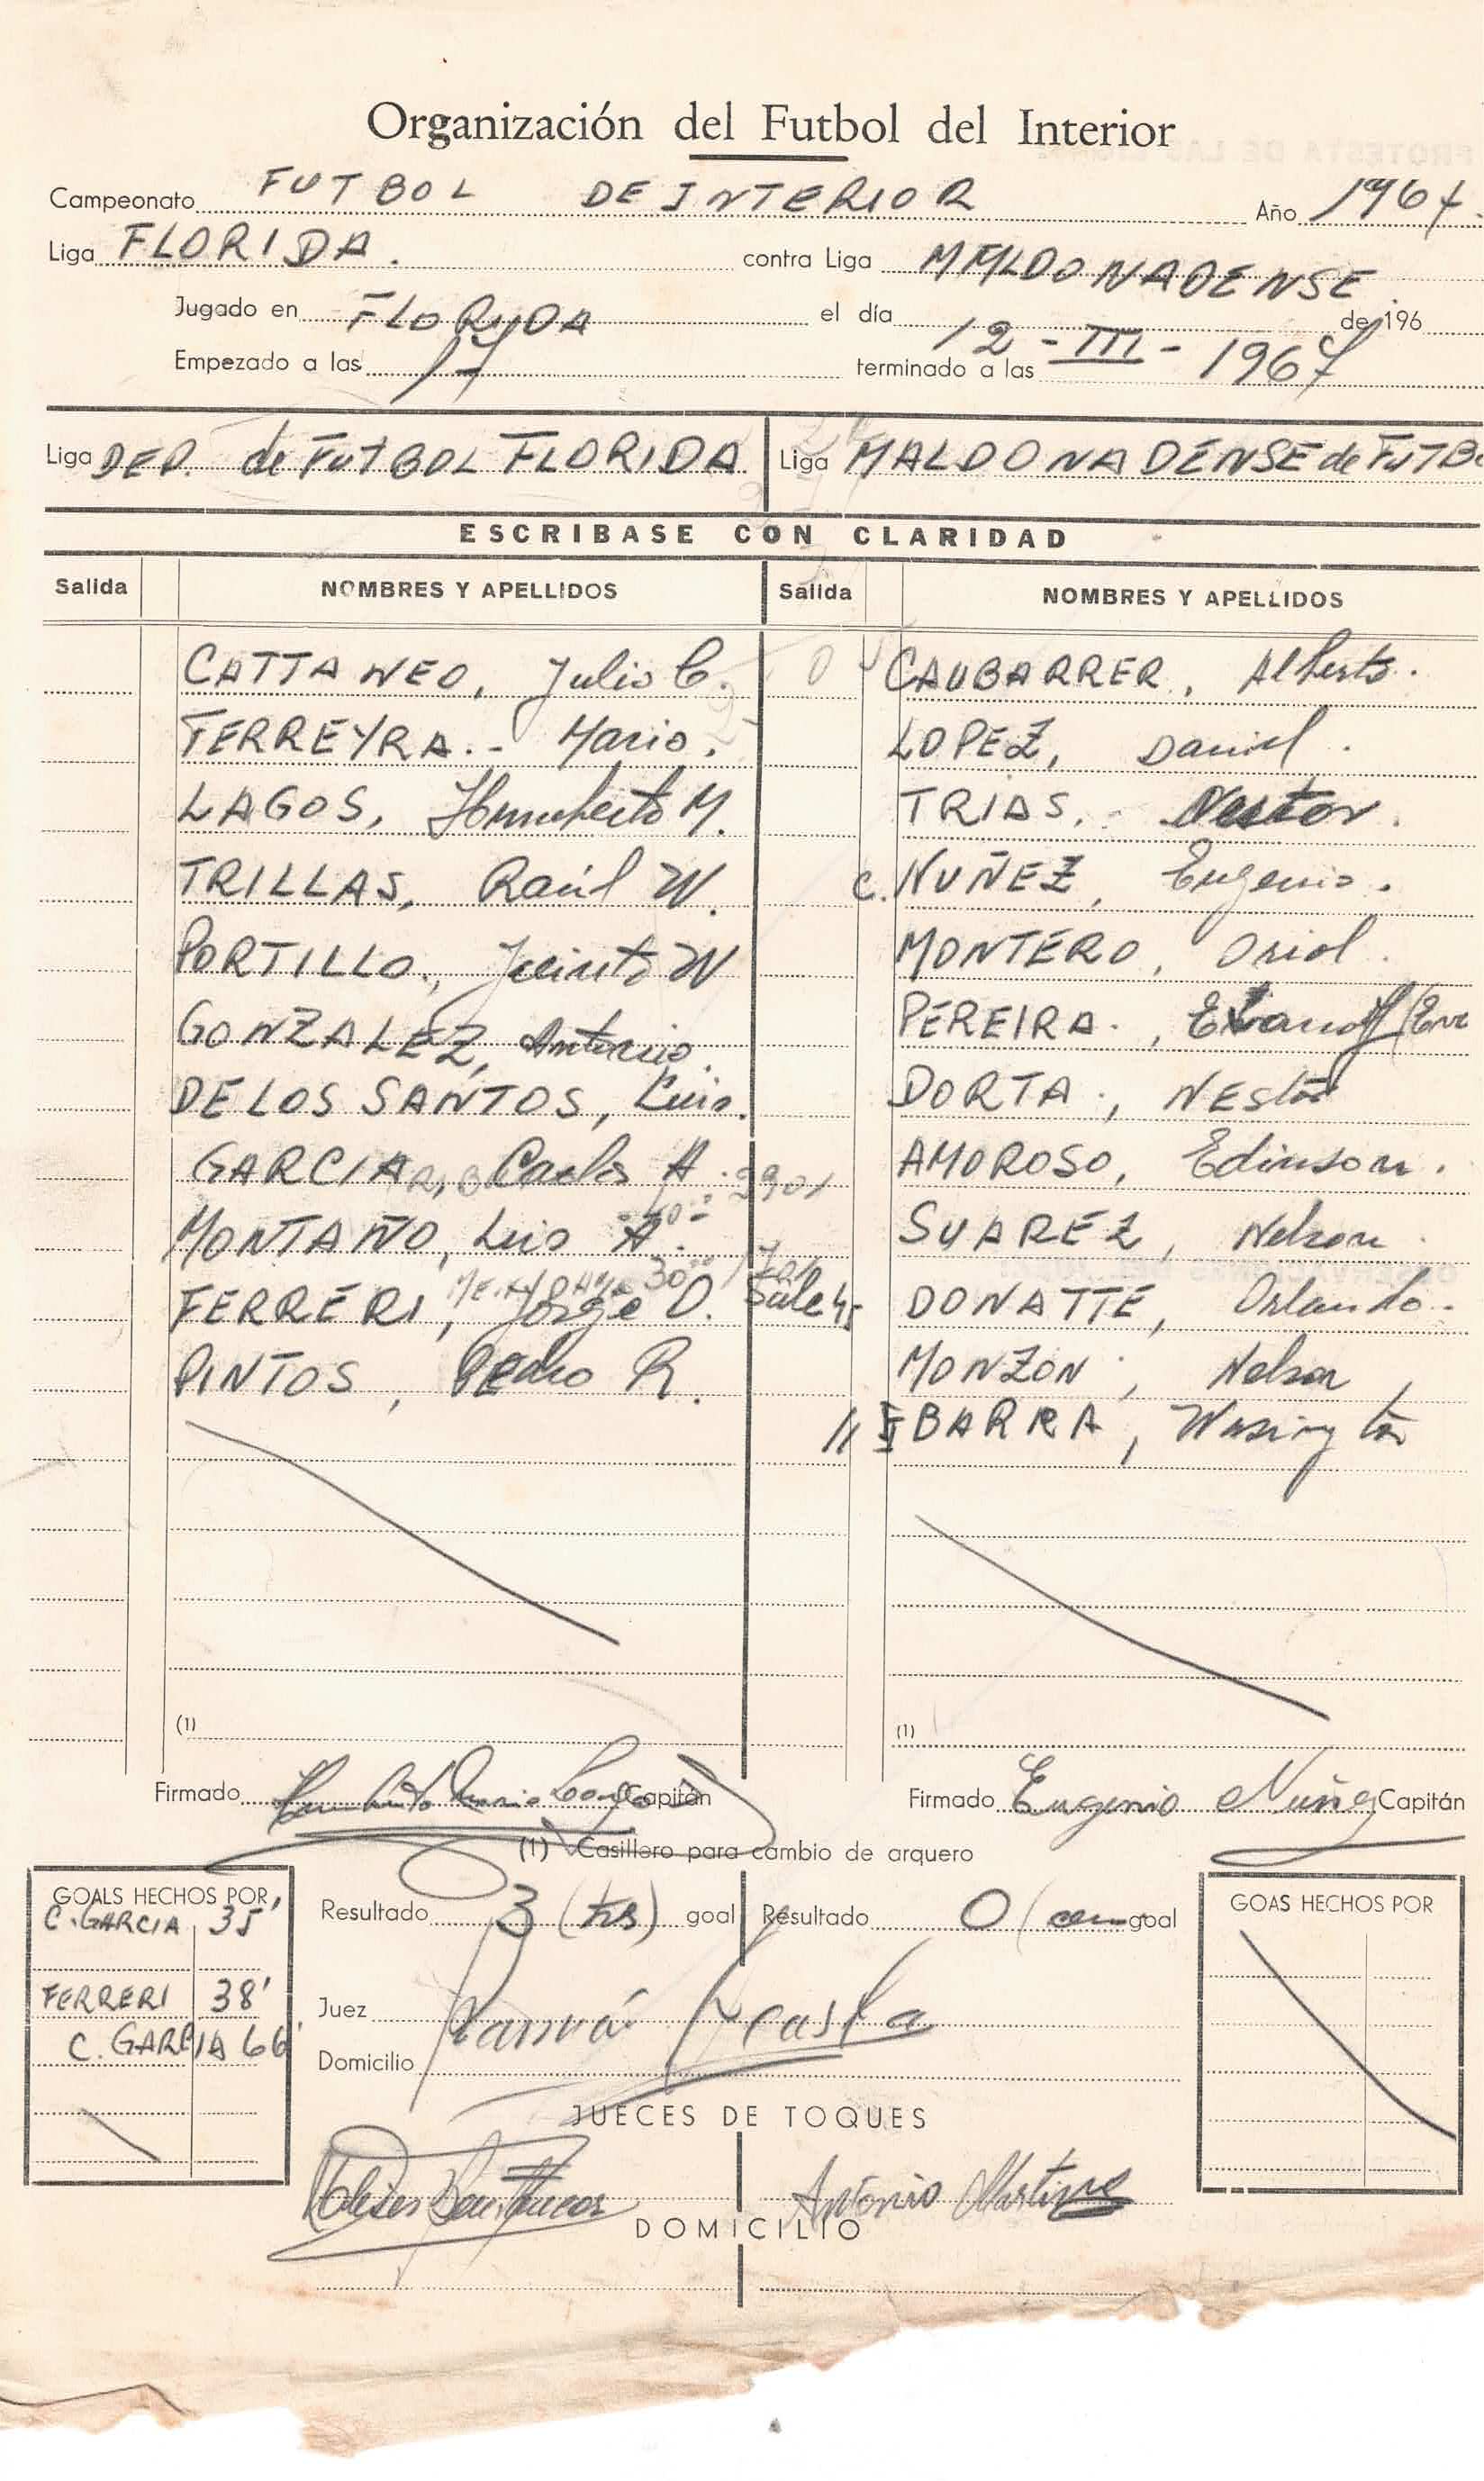 Organización del Futbol del Interior
Campeonato FUTBOL DE INTERIOR Año 1967.
Liga FLORIDA. contra Liga MALDONADENSE.
Jugado en FLORYDA el día 12-III-1967 de 196
Empezado a las 17 terminado a las
Liga DEP. de FUTBOL FLORIDA Liga MALDONADENSE de FUTBO
ESCRIBASE CON CLARIDAD
Salida NOMBRES Y APELLIDOS Salida NOMBRES Y APELLIDOS
CATTANEO, Julio C. CAUBARRER, Alberto.
FERREYRA.- Mario. LOPEZ, Daniel.
LAGOS, Humberto M. TRIAS, Nestor.
TRILLAS, Raúl W. c. NUÑEZ, Eugenio.
PORTILLO, Jacinto W MONTERO, Oriol.
GONZALEZ, Antonio. PEREIRA.,
DE LOS SANTOS, Luis. DORTA, NEstor
GARCIA, Carlos A. AMOROSO, Edinson.
MONTAÑO, Luis A. SUAREZ, Nelson
FERRERI, Jorge O. Sale 45 DONATTE, Orlando.
PINTOS, PEdro R. MONZON, Nelson,
11 IBARRA, Wasington
(1) (1)
Firmado Capitán Firmado Eugenio Núñez Capitán
(1) Casillero para cambio de arquero
GOALS HECHOS POR
C. GARCIA 35'
FERRERI 38'
C. GARCIA 66'
Resultado 3 (tres) goal Resultado 0 (cero goal
GOAS HECHOS POR
Juez
Domicilio
JUECES DE TOQUES
Antonio Martinez
DOMICILIO